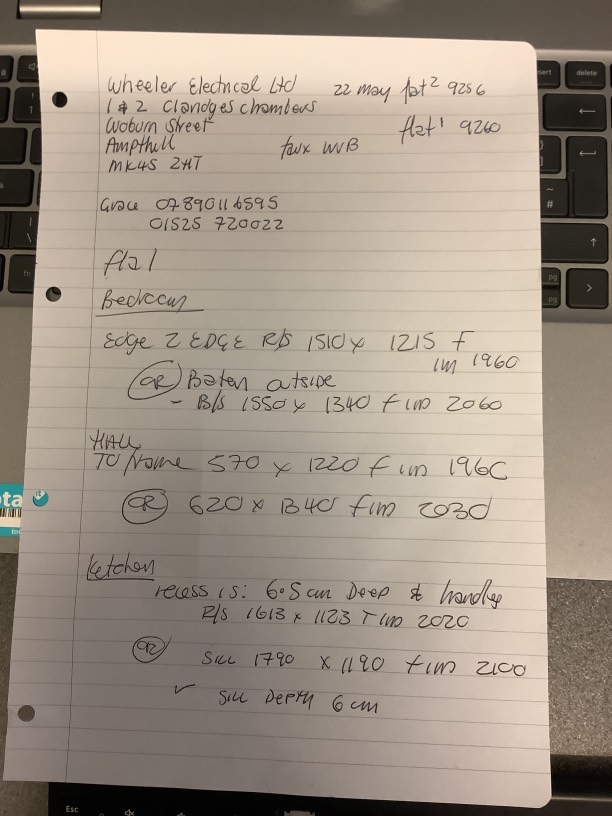 Wheeler Electrical Ltd 22 may flat 2 9256
1 & 2 Claridges Chambers flat 1 9260
Woburn Street
Ampthill faux WVB
MK45 2HT
Grace 07890116595
01525 720022
flat 1
Bedroom
Edge 2 EDGE R/S 1510 x 1215 F
1m 1960
OR Baten outside
- B/S 1550 x 1340 F 1m 2060
HALL
TO frame 570 x 1220 F 1m 1960
OR 620 x 1340 F 1m 2030
Kitchen
recess is: 6.5cm Deep & handles
R/S 1613 x 1123 F 1m 2020
OR Sill 1790 x 1190 F 1m 2100
Sill Depth 6cm
delete
Esc